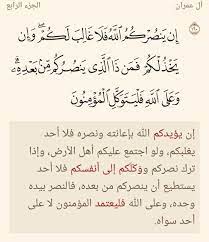 آل عمران الجزء الرابع
١٦٠
إِن يَنصُرْكُمُ ٱللَّهُ فَلَا غَالِبَ لَكُمْ ۖ وَإِن
يَخْذُلْكُمْ فَمَن ذَا ٱلَّذِى يَنصُرُكُم مِّنۢ بَعْدِهِۦ ۗ
وَعَلَى ٱللَّهِ فَلْيَتَوَكَّلِ ٱلْمُؤْمِنُونَ
إن يؤيدكم الله بإعانته ونصره فلا أحد
يغلبكم، ولو اجتمع عليكم أهل الأرض، وإذا
ترك نصركم ووكلكم إلى أنفسكم فلا أحد
يستطيع أن ينصركم من بعده، فالنصر بيده
وحده، وعلى الله فليعتمد المؤمنون لا على
أحد سواه.